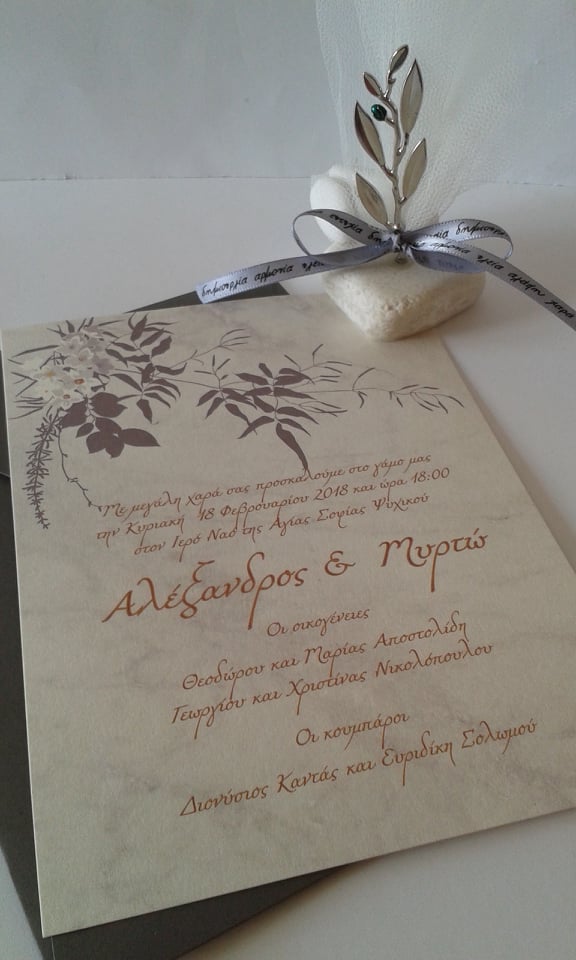 δημιουργία αρμονία
αγάπη χαρά
Με μεγάλη χαρά σας προσκαλούμε στο γάμο μας
την Κυριακή 18 Φεβρουαρίου 2018 και ώρα 18:00
στον Ιερό Ναό της Αγίας Σοφίας Ψυχικού
Αλέξανδρος & Μυρτώ
Οι οικογένειες
Θεοδώρου και Μαρίας Αποστολίδη
Γεωργίου και Χριστίνας Νικολόπουλου
Οι κουμπάροι
Διονύσιος Καντάς και Ευριδίκη Σολωμού